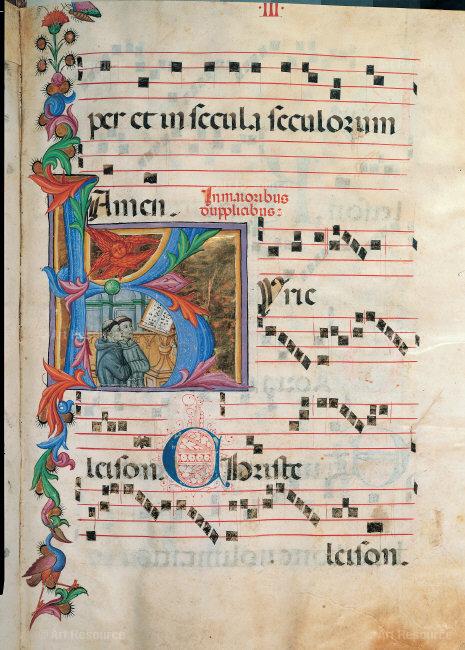 ·III·
per et in secula seculorum
Amen. In maioribus
dupplicibus:
Kyrie
leison. Christe
leison.
Art Resource
Art Resource